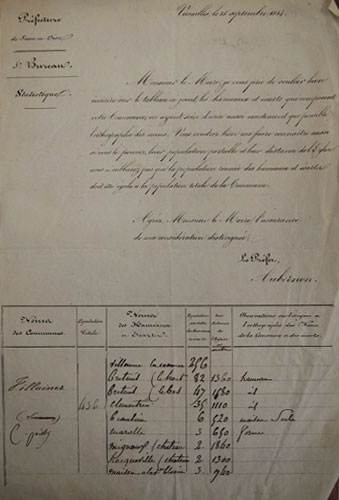 Préfecture
de Seine-et-Oise
Bureau
Statistique
Versailles, le 25 septembre
Monsieur le Maire, je vous prie de vouloir bien
inscrire sur le tableau ci-joint les hameaux et écarts qui composent
votre Commune, en ayant soin d'écrire aussi exactement que possible
l'orthographe des noms. Vous voudrez bien me faire connaître aussi
si vous le pouvez, leur population partielle et leur distance de l'Église
vous n'oublierez pas que la population réunie des hameaux et écarts
doit être égale à la population totale de la Commune.
Agréez, Monsieur le Maire, l'assurance
de ma considération distinguée.
Le Préfet,
Aubernon
Noms des Communes
Population Totale
Noms des Hameaux et Écarts
Population partielle
distance de l'Église
Observations sur l'origine et l'orthographe des Noms de la Commune et des écarts
Villaines
436
Breteuil (le haut) 82 1360 hameau
Breteuil (le bas) 67 id
35 1110 id
6 520 maison
marolle 3 650 ferme
(château 2 1860
(château 2 1300
maison 3 960